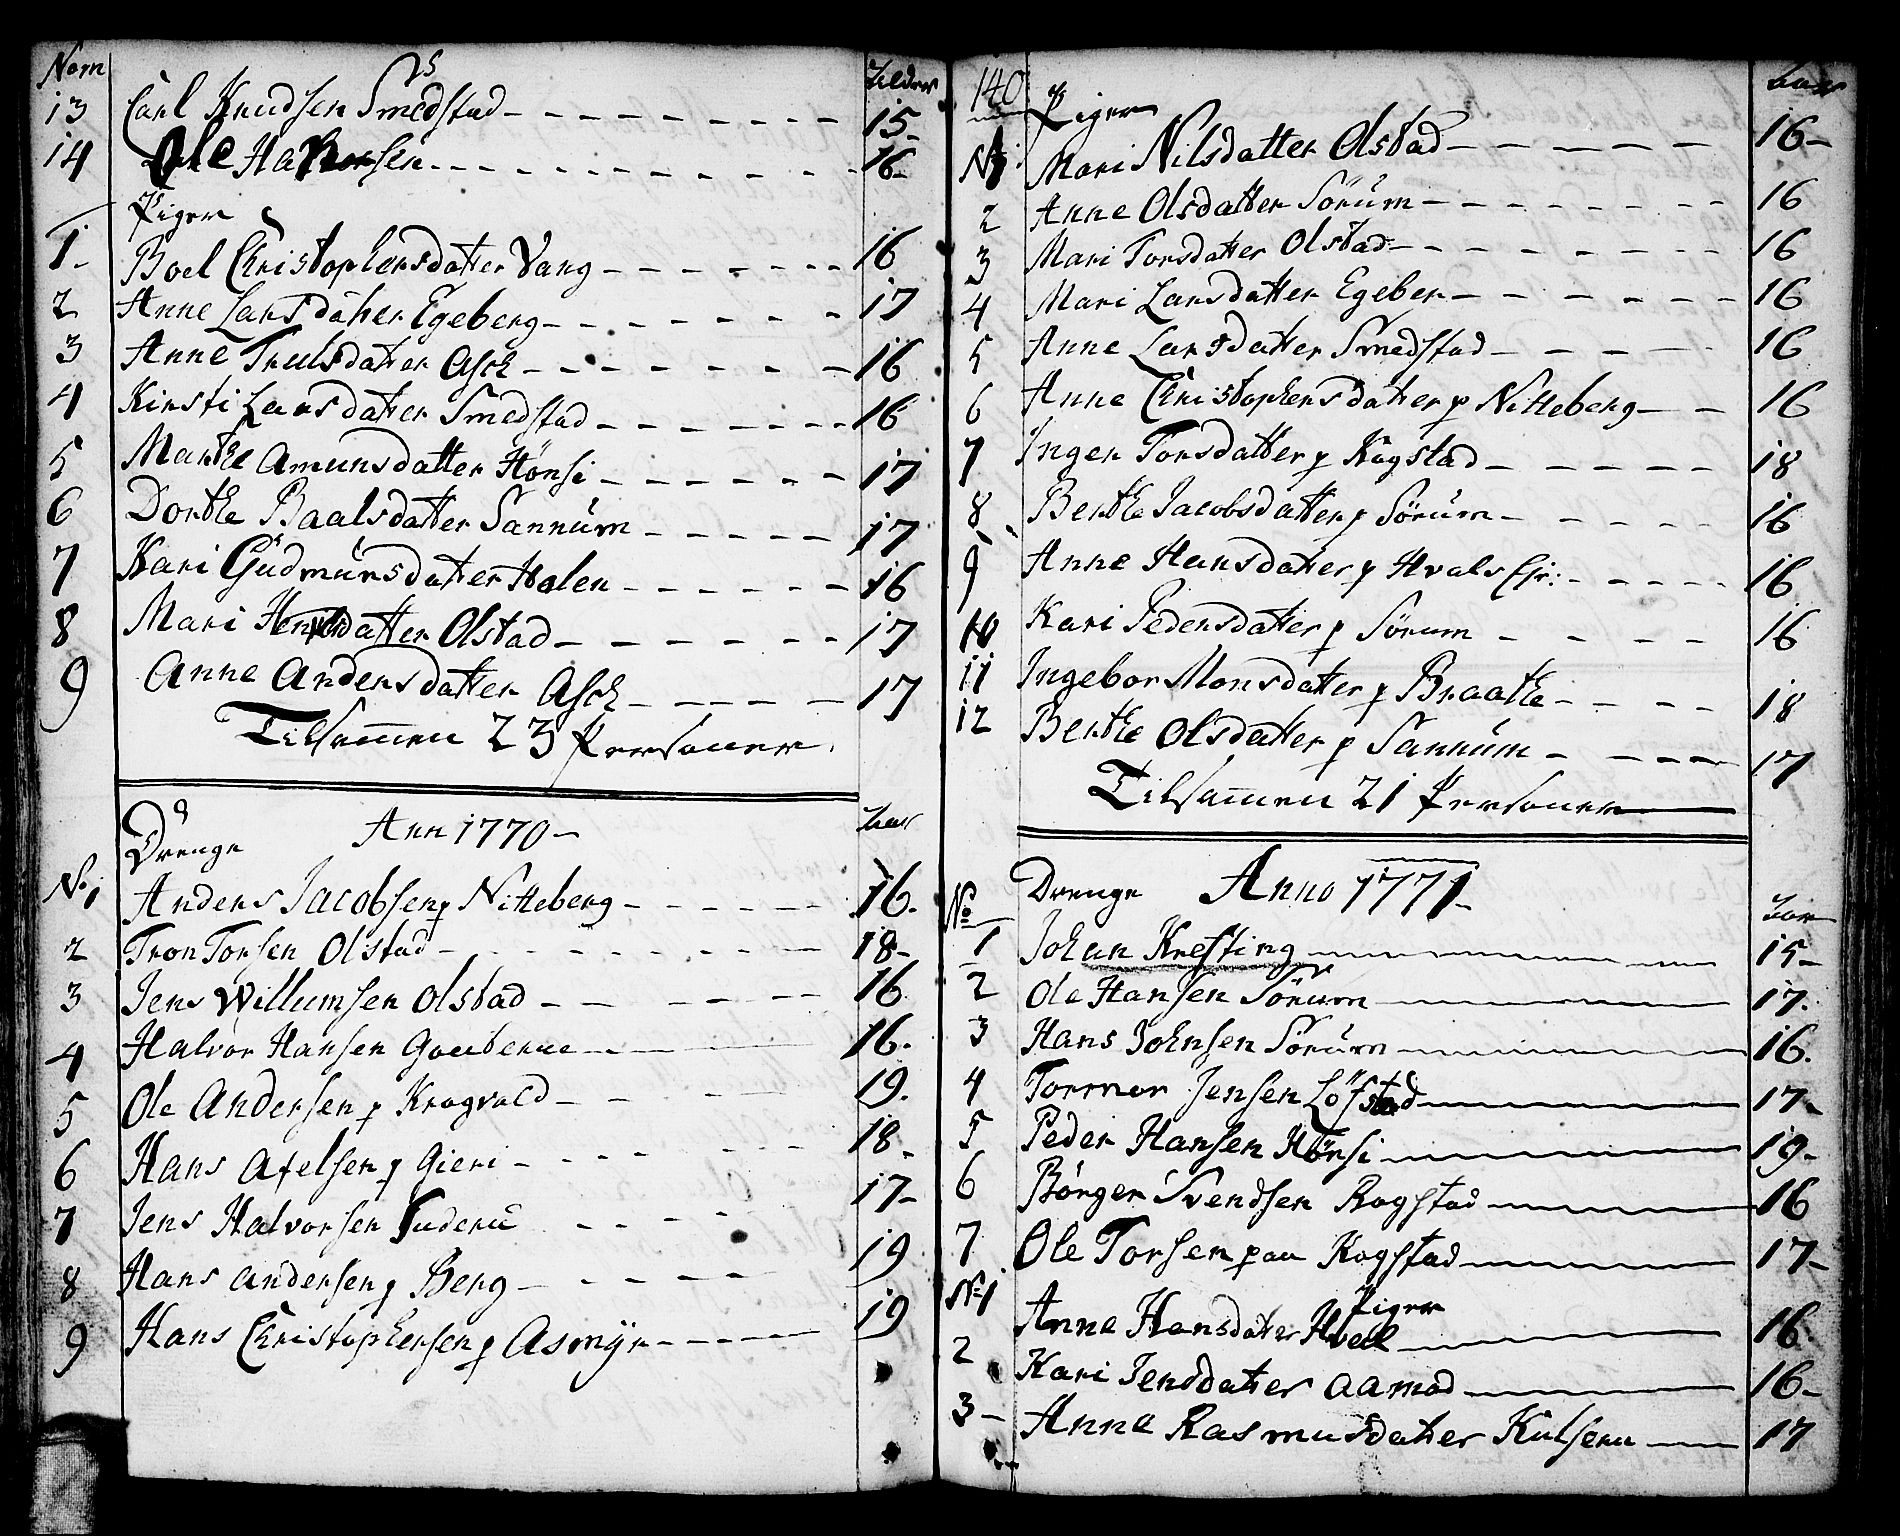 Nom
Alder
13 Carl Knudsen Smedstad 15
14 Ole 16
Piger
1. Boel Christophersdatter Vang 16
2 Anne Larsdatter Egeberg 17
3 Anne Trulsdatter Asch 16
4 Kirsti Larsdatter Smedstad 16
5 Marthe Amunsdatter Hønsi 17
6 Dorthe Baalsdatter Sannùm 17
7 Kari Gudmùnsdatter Holen 16
8 Mari datter Olstad 17
9 Anne Andersdatter Asch 17
Tilsammen 23 Personer.
Ann 1770 Aar
Drenge
No 1 Anders Jacobsen p Nitteberg 16.
2 Tron Torsen Olstad 18
3 Jens Willumsen Olstad 16
4 Halvor Hansen 16.
5 Ole Andersen p Krogvold 19.
6 Hans Axelsen p Gieri 18
7 Jens Halvorsen 17
8 Hans Andersen p Berg 19
9 Hans Christophersen p Asmÿr 19
140
Piger Aar
No 1 Mari Nilsdatter Olstad 16
2 Anne Olsdatter Sörùm 16
3 Mari Torsdatter Olstad 16
4 Mari Larsdatter Egeber 16
5 Anne Larsdatter Smedstad 16
6 Anne Christophersdatter p Nitteberg 16
7 Inger Torsdatter p Kogstad 18
8 Berthe Jacobsdatter p Sörùm 16
9 Anne Hansdatter p Hvals Ejr: 16
10 Kari Pedersdatter p Sörum 16
11 Ingebor Monsdatter p Braathe 18
12 Berthe Olsdatter p Sannùm 17
Tilsammen 21 Personer
Drenge Anno 1771
No Aar
1 Johan Krefting 15
2 Ole Hansen Sörum 17.
3 Hans Johnsen Sörùm 16.
4 Tormor Jensen Löfstad 17
5 Peder Hansen Hönsi 19
6 Börger Svendsen Rogstad 16
7 Ole Torsen paa Kogstad 17
Piger
No 1 Anne Hansdatter Hval 16
2 Kari Jensdatter Aamod 16
3 Anne Rasmusdatter Kulseru 17